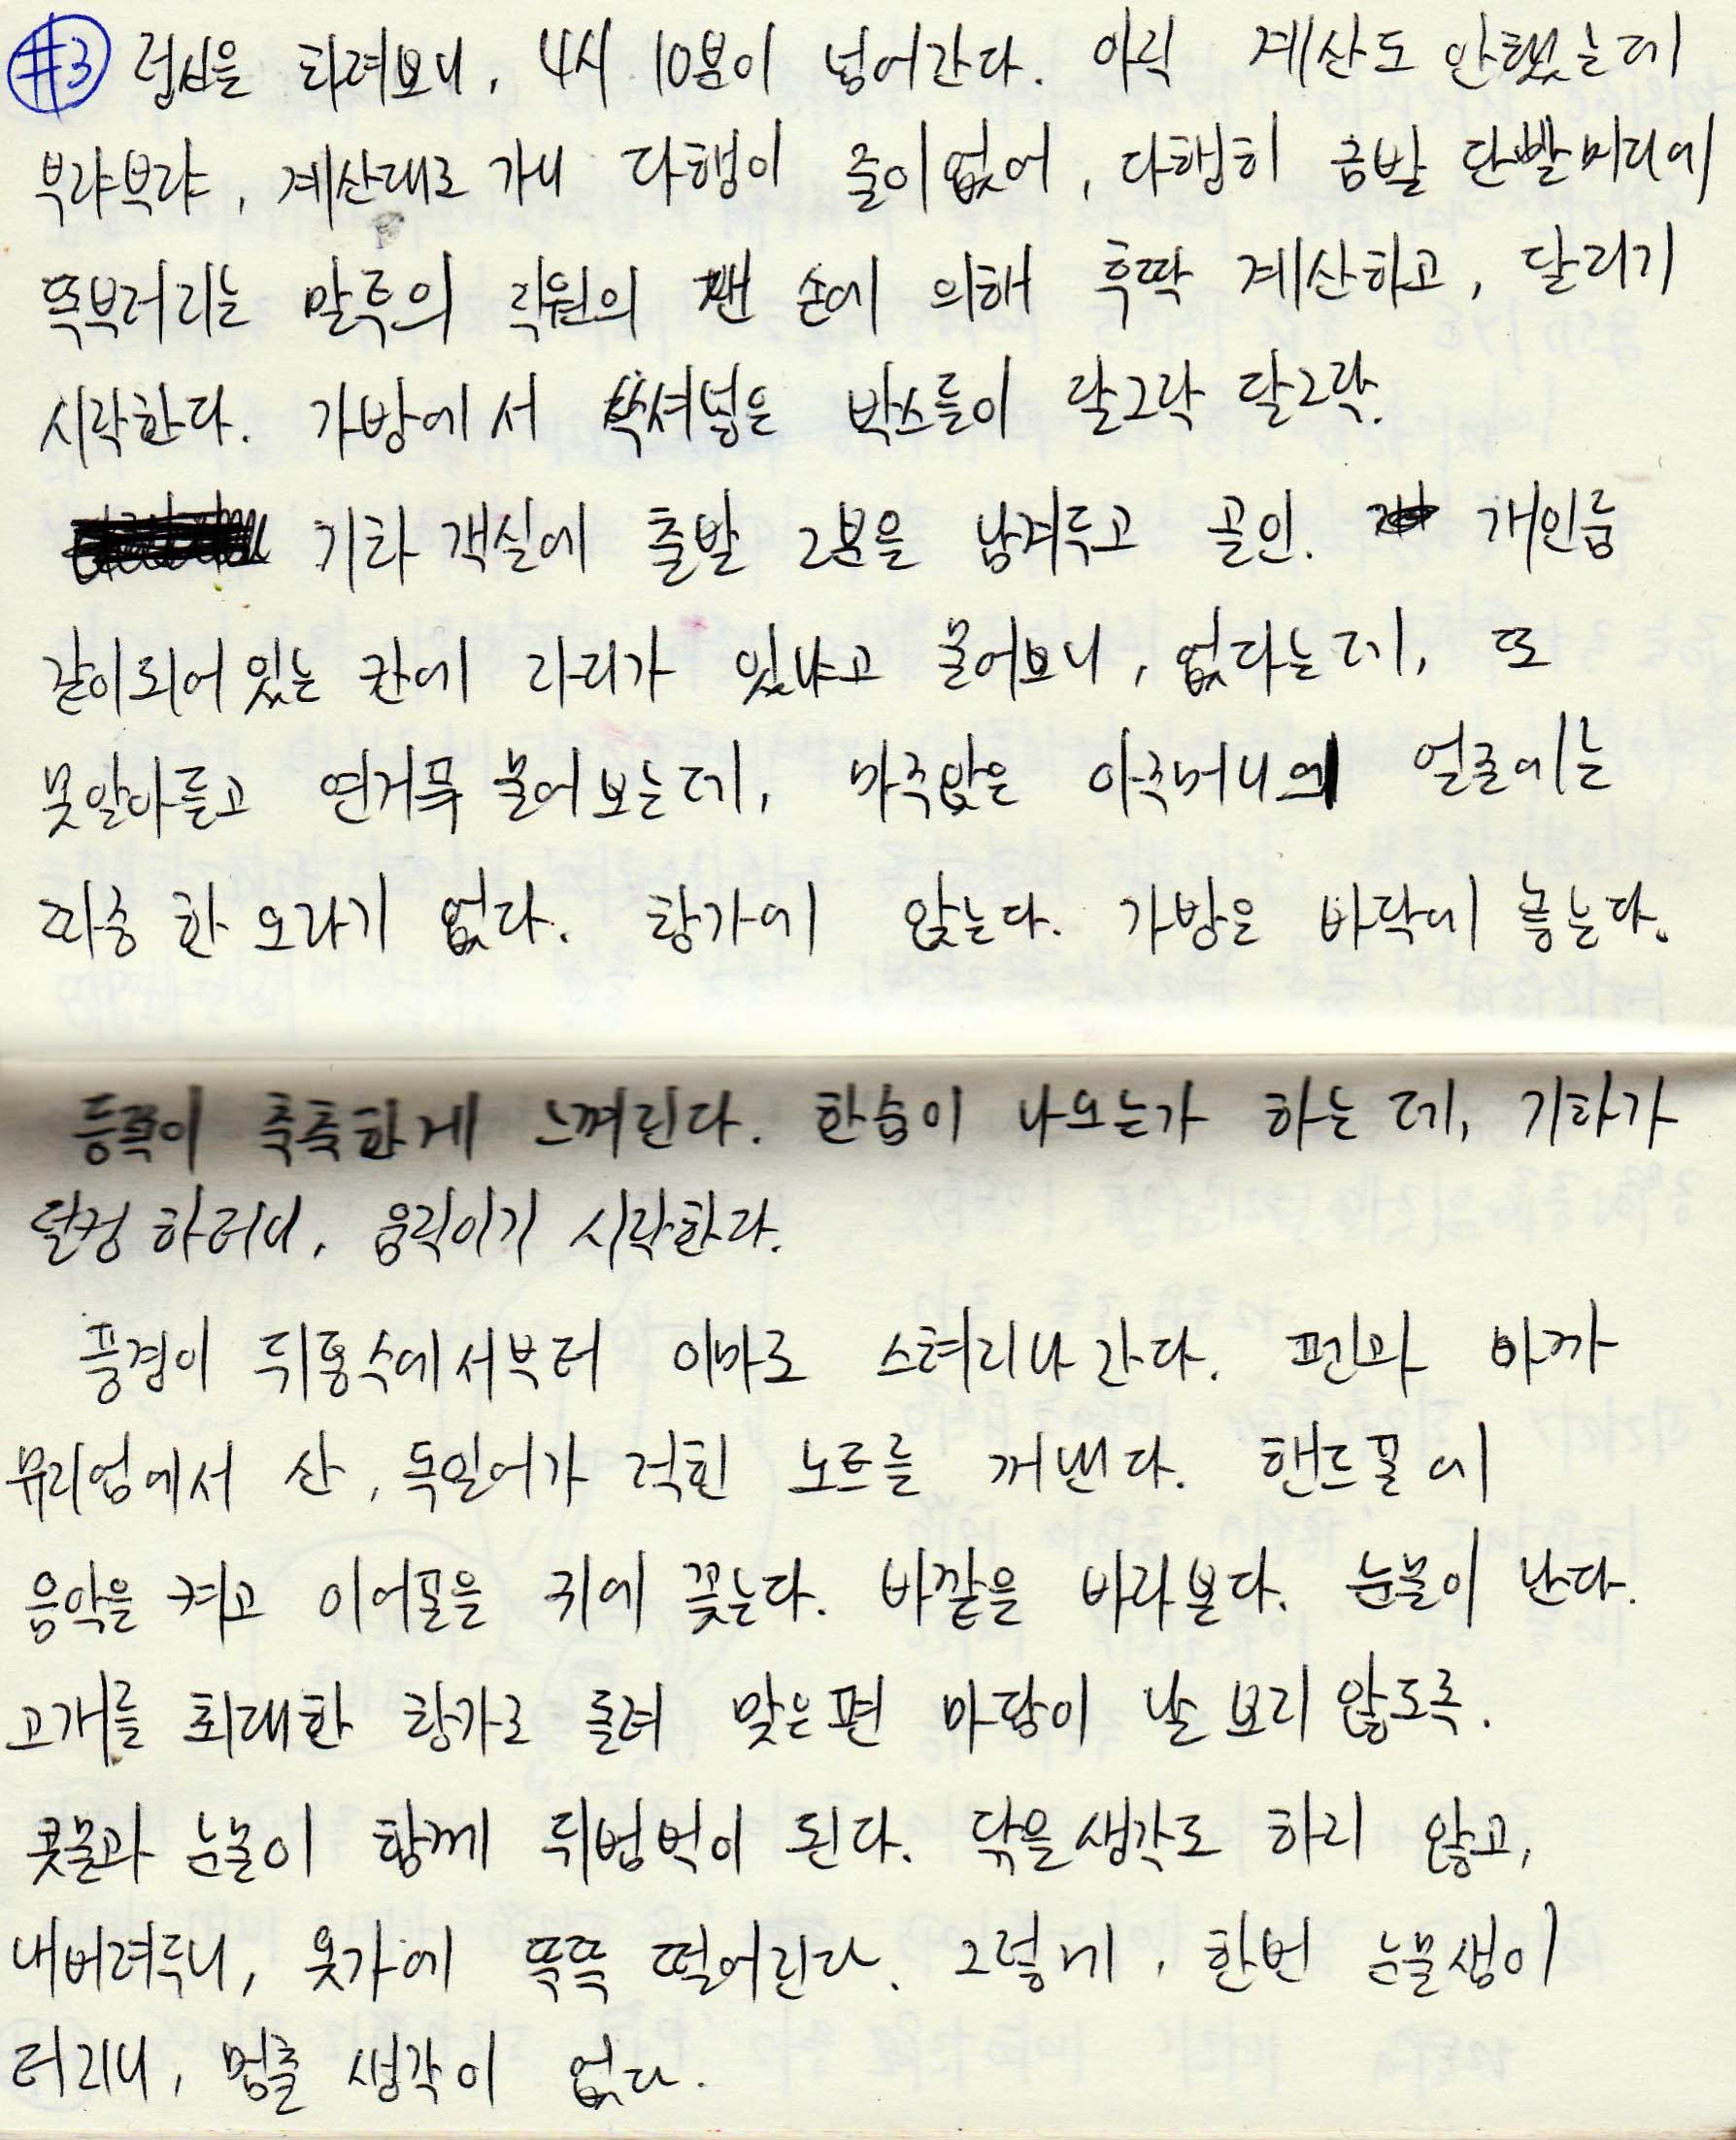 #3 정신을 차려보니, 4시 10분이 넘어간다. 아직 계산도 안했는데
부랴부랴, 계산대로 가니 다행이 줄이 없어, 다행히 금발 단발머리에
뚝부러지는 말투의 직원의 잰 손에 의해 후딱 계산하고, 달리기
시작한다. 가방에서 쑤셔넣은 박스들이 달그락 달그락.
기차 객실에 출발 2분을 남겨두고 골인. 개인룸
같이 되어 있는 칸에 자리가 있냐고 물어보니, 없다는데, 또
못알아듣고 연거푸 물어보는데, 마주앉은 아주머니의 얼굴에는
짜증 한 오라기 없다. 창가에 앉는다. 가방은 바닥에 놓는다.
등쪽이 축축하게 느껴진다. 한숨이 나오는가 하는데, 기차가
덜컹하더니, 움직이기 시작한다.
풍경이 뒤통수에서부터 이마로 스쳐지나간다. 펜과 아까
뮤지엄에서 산, 독일어가 적힌 노트를 꺼낸다. 핸드폰에
음악을 켜고 이어폰을 귀에 꽂는다. 바깥을 바라본다. 눈물이 난다.
고개를 최대한 창가로 돌려 맞은편 마담이 날 보지 않도록.
콧물과 눈물이 함께 뒤범벅이 된다. 닦을 생각도 하지 않고,
내버려두니, 옷가에 뚝뚝 떨어진다. 그렇게, 한번 눈물샘이
터지니, 멈출 생각이 없다.